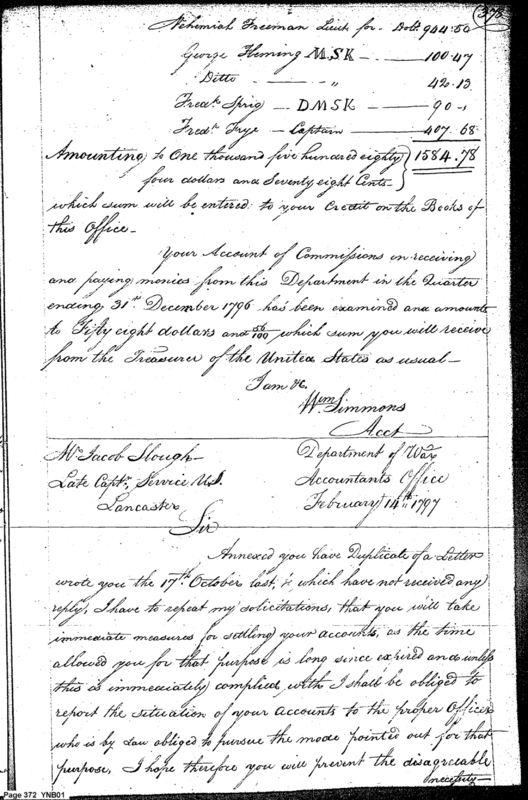 373
Nehemiah Freeman Lieut for - Dolls 944.50
George Fleming MSK - 100.47
Ditto - " 42.13
Fredk Sprig - DMSK - 90 -
Fredk Frye - Captain - 407.68
Amounting to One thousand five hundred eighty 1584.78
four dollars and Seventy eight Cents -
which sum will be entered to your Credit on the Books of
this Office -
Your Account of Commissions on receiving
and paying monies from this Department in the Quarter
ending 31st December 1796 has been examined and amounts
to Fifty eight dollars and 56/100 which sum you will receive
from the Treasurer of the United States as usual -
I am &c.
Wm Simmons
Acct
Mr Jacob Slough - Department of War
Late Captn Service U.S. Accountants Office
Lancaster February 14th 1797
Sir
Annexed you have Duplicate of a Letter
wrote you the 17th October last, & which have not received any
reply, I have to repeat my solicitations, that you will take
immediate measures for settling your accounts, as the time
allowed you for that purpose is long since expired and unless
this is immediately complied with I shall be obliged to
report the situation of your accounts to the proper Officer
who is by Law obliged to pursue the mode pointed out for that
purpose, I hope therefore you will prevent the disagreeable
necessity -
Page 372 YNB01